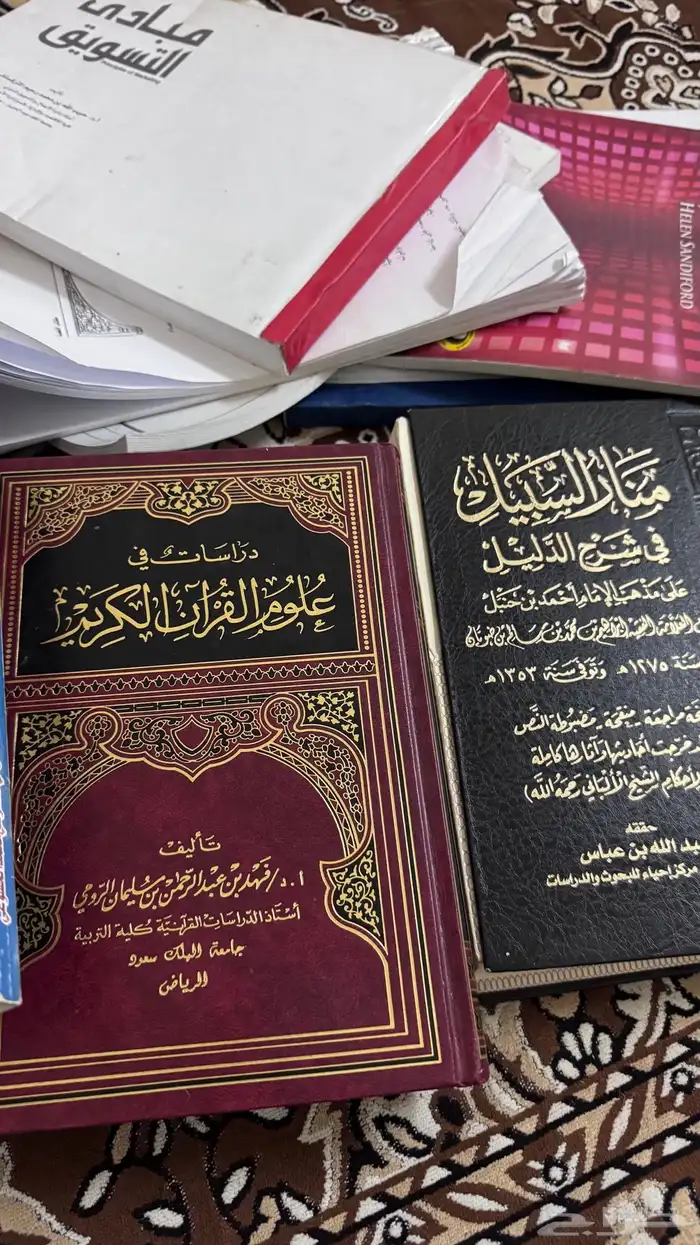 مبادئ
التسويق
HELEN SANDIFORD
دراسات في
علوم القرآن الكريم
تأليف
أ.د/ فهد بن عبد الرحمن بن سليمان الرومي
أستاذ الدراسات القرآنية كلية التربية
جامعة الملك سعود
الرياض
منار السبيل
في شرح الدليل
على مذهب الإمام أحمد بن حنبل
إبراهيم بن محمد بن سالم بن ضويان
سنة ١٢٧٥هـ وتوفي سنة ١٣٥٣هـ
مراجعة منقحة مضبوطة النص
خرجت أحاديثها وآثارها كاملة
أحكام الشيخ الألباني رحمه الله)
حققه
بد الله بن عباس
مركز إحياء للبحوث والدراسات
حراج